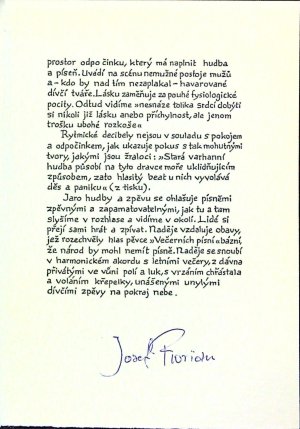 prostor odpočinku, který má naplnit hudba
a píseň. Uvádí na scénu nemužné postoje mužů
a-kdo by nad tím nezaplakal-havarované
dívčí tváře. Lásku zaměňuje za pouhé fysiologické
pocity. Odtud vidíme »nesnáze tolika srdcí dobýti
si nikoli již lásku anebo příchylnost, ale jenom
trošku ubohé rozkoše«
Rytmické decibely nejsou v souladu s pokojem
a odpočinkem, jak ukazuje pokus s tak mohutnými
tvory, jakými jsou žraloci: »Stará varhanní
hudba působí na tyto dravce moře uklidňujícím
způsobem, zato hlasitý beat u nich vyvolává
děs a paniku« (z tisku).
Jaro hudby a zpěvu se ohlašuje písněmi
zpěvnými a zapamatovatelnými, jak tu a tam
slyšíme v rozhlase a vidíme v okolí. Lidé si
přejí sami hrát a zpívat. Naděje vzdaluje obavy,
jež rozechvěly hlas pěvce »Večerních písní« bázní,
že národ by mohl nemít písně. Naděje se snoubí
v harmonickém akordu s letními večery, z dávna
přivátými ve vůni polí a luk, s vrzáním chřástala
a voláním křepelky, unášenými unylými
dívčími zpěvy na pokraj nebe.
Josef Florian